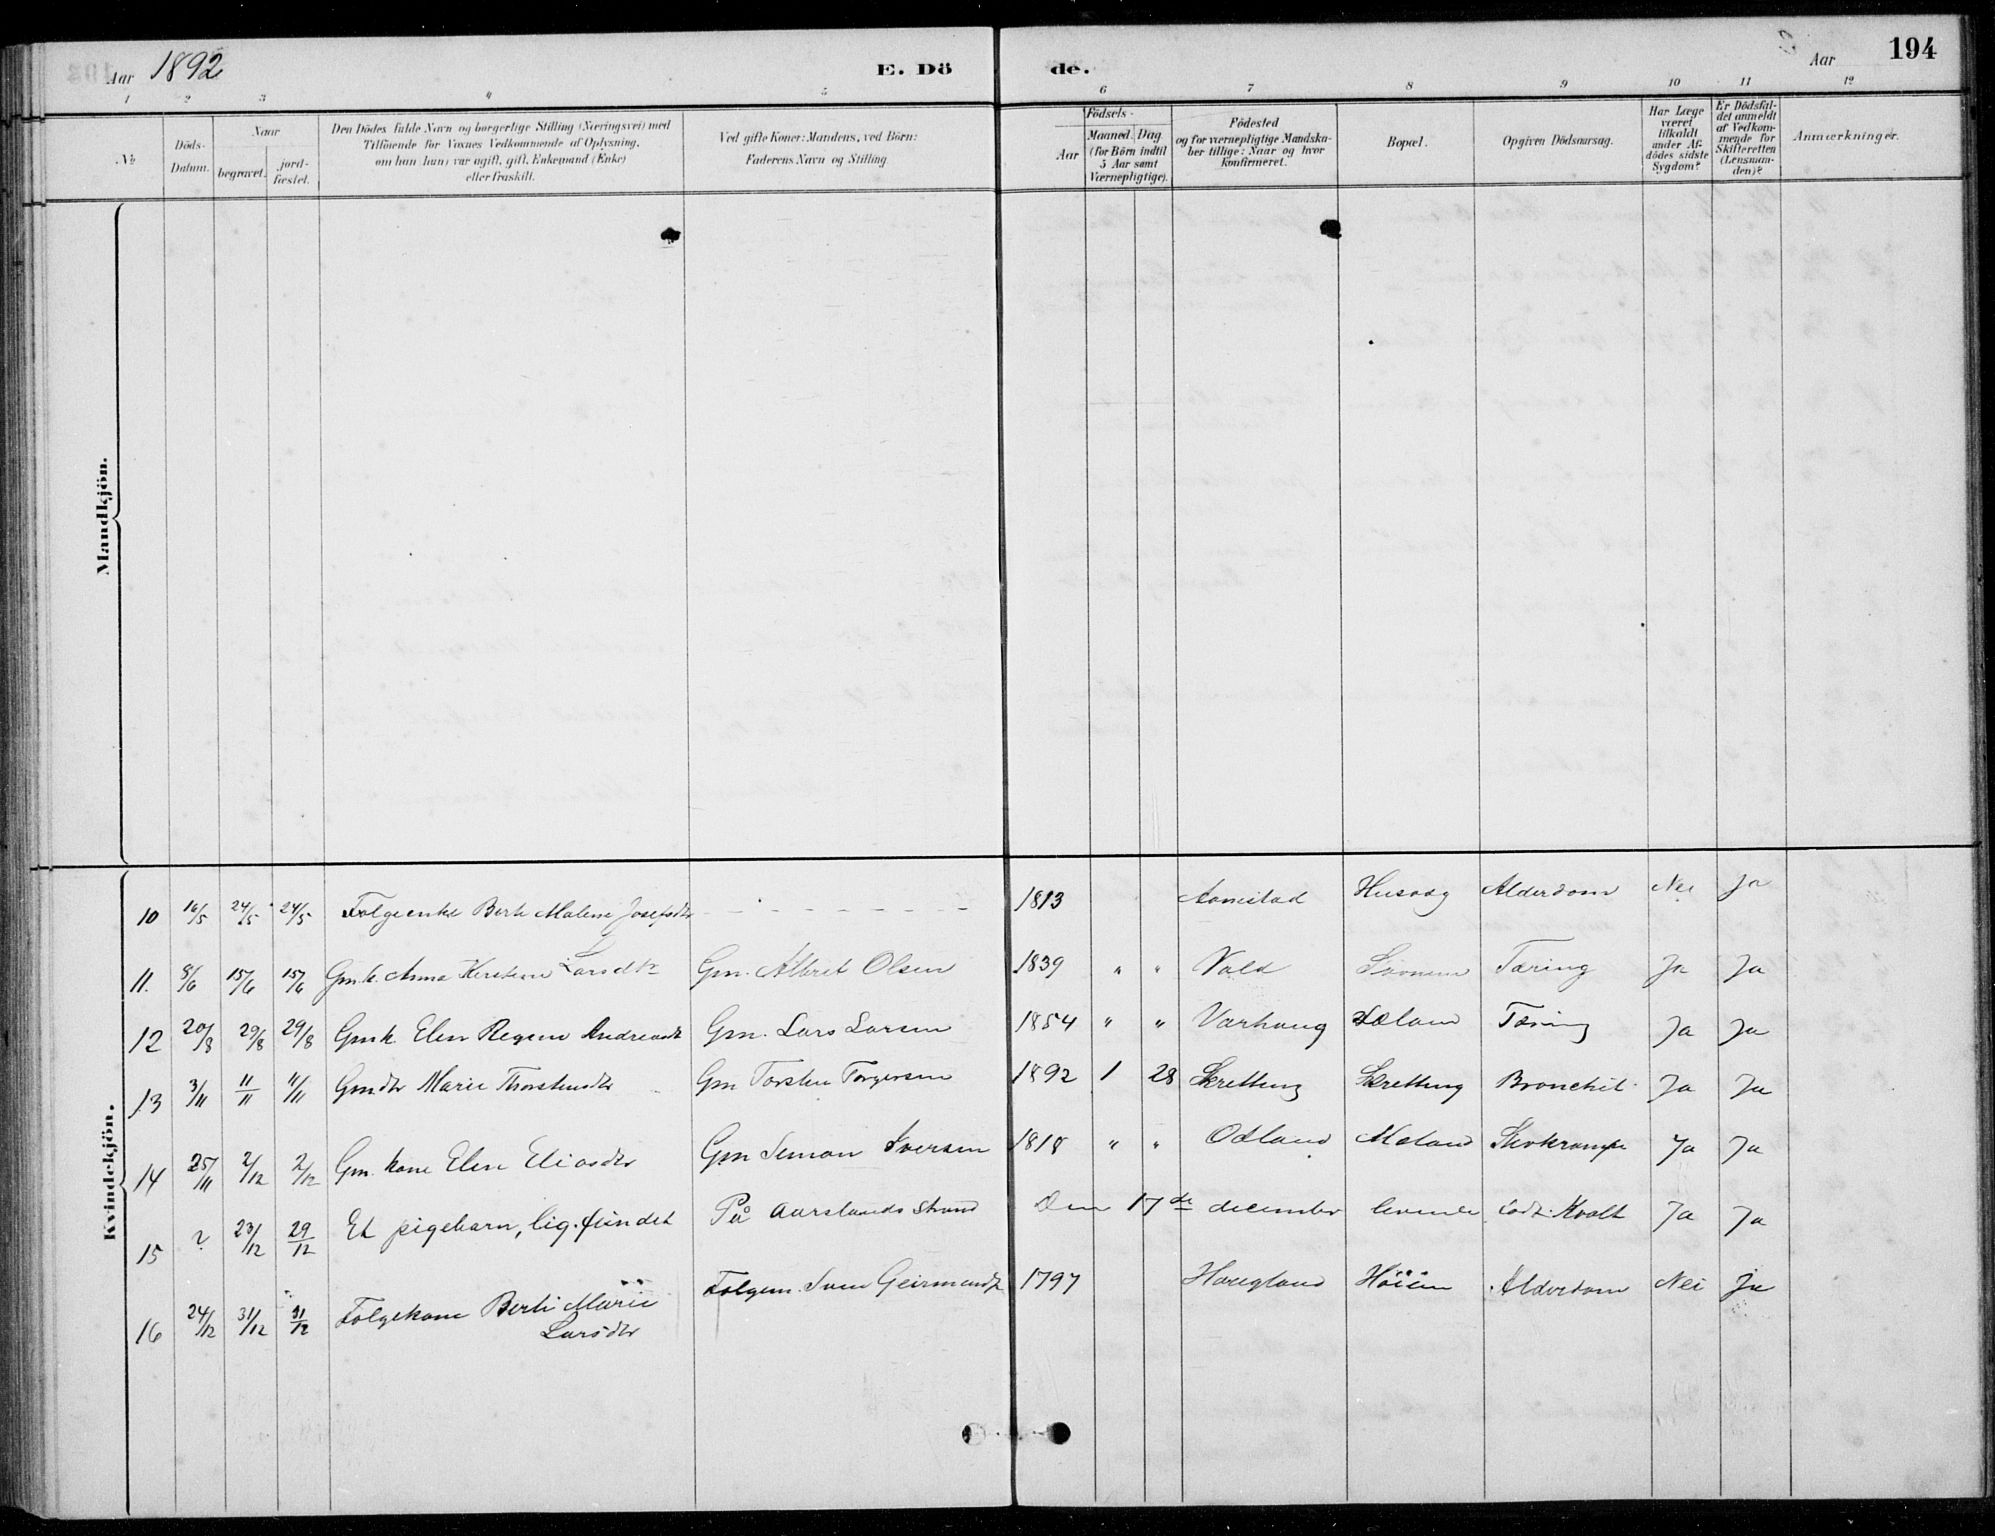 Aar 1892
E. Dö
de.
Aar
194
1 2 3 4 5 6 7 8 9 10 11 12
№
Döds-
Datum.
Naar
begravet.
jord-
fæstet.
Den Dödes fulde Navn og borgerlige Stilling (Næringsvei) med
Tilföiende for Voxnes Vedkommende af Oplysning,
om han (hun) var ugift, gift, Enkemand (Enke)
eller fraskilt.
Ved gifte Koner: Mandens, ved Börn:
Faderens Navn og Stilling.
Födsels-
Aar
Maaned. Dag
(for Börn indtil
5 Aar samt
Værnepligtige).
Födested
og for værnepligtige Mandska-
ber tillige: Naar og hvor
konfirmeret.
Bopæl.
Opgiven Dödsaarsag.
Har Læge
været
tilkaldt
under Af-
dödes sidste
Sygdom?
Er Dödsfal-
det anmeldt
af Vedkom-
mende for
Skifteretten
(Lensman-
den)?
Anmærkninger.
Mandkjön.
Kvindekjön.
10 16/5 24/5 24/5 Folgeenke Berte Malene Josefsdtr - - - - - - - - 1813 Husvæg Alderdom Nei Ja
11. 8/6 15/6 15/6 Gmk. Anna Kirstine Larsdtr Gm. Albret Olsen 1839 " " Vold Tæring Ja Ja
12 20/8 29/8 29/8 Gmk. Elen Regine Andreasdt Gm. Lars Larsen 1854 " " Varhaug Tæring Ja Ja
13 3/11 11/11 11/11 Gmdtr Marie Thorstensdtr Gm Torsten Torgersen 1892 1 28 Skretting Skretting Bronchit Ja Ja
14 25/11 2/12 2/12 Gm. kone Elen Eliasdtr Gm Simon Iversen 1818 " " Odland Ja Ja
15 ? 23/12 29/12 Et pigebarn, lig. fundet På Aarslands strand Den 17de december levende födt. Kvalt Ja Ja
16 24/12 31/12 31/12 Folgekone Berte Marie
Larsdtr Folgem. Sven Geirmundsen 1797 Haugland Höien Alderdom Nei Ja